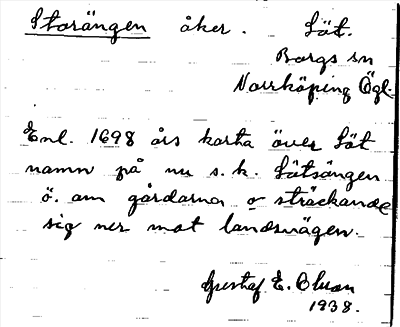 Storängen åker. Löt.
Borgs sn
Norrköping Ögl.
Enl. 1698 års karta över Löt
namn på nu s.k. Lötsängen
ö. om gårdarna o sträckande
sig ner mot landsvägen.
Gustaf E. Olson
1938.